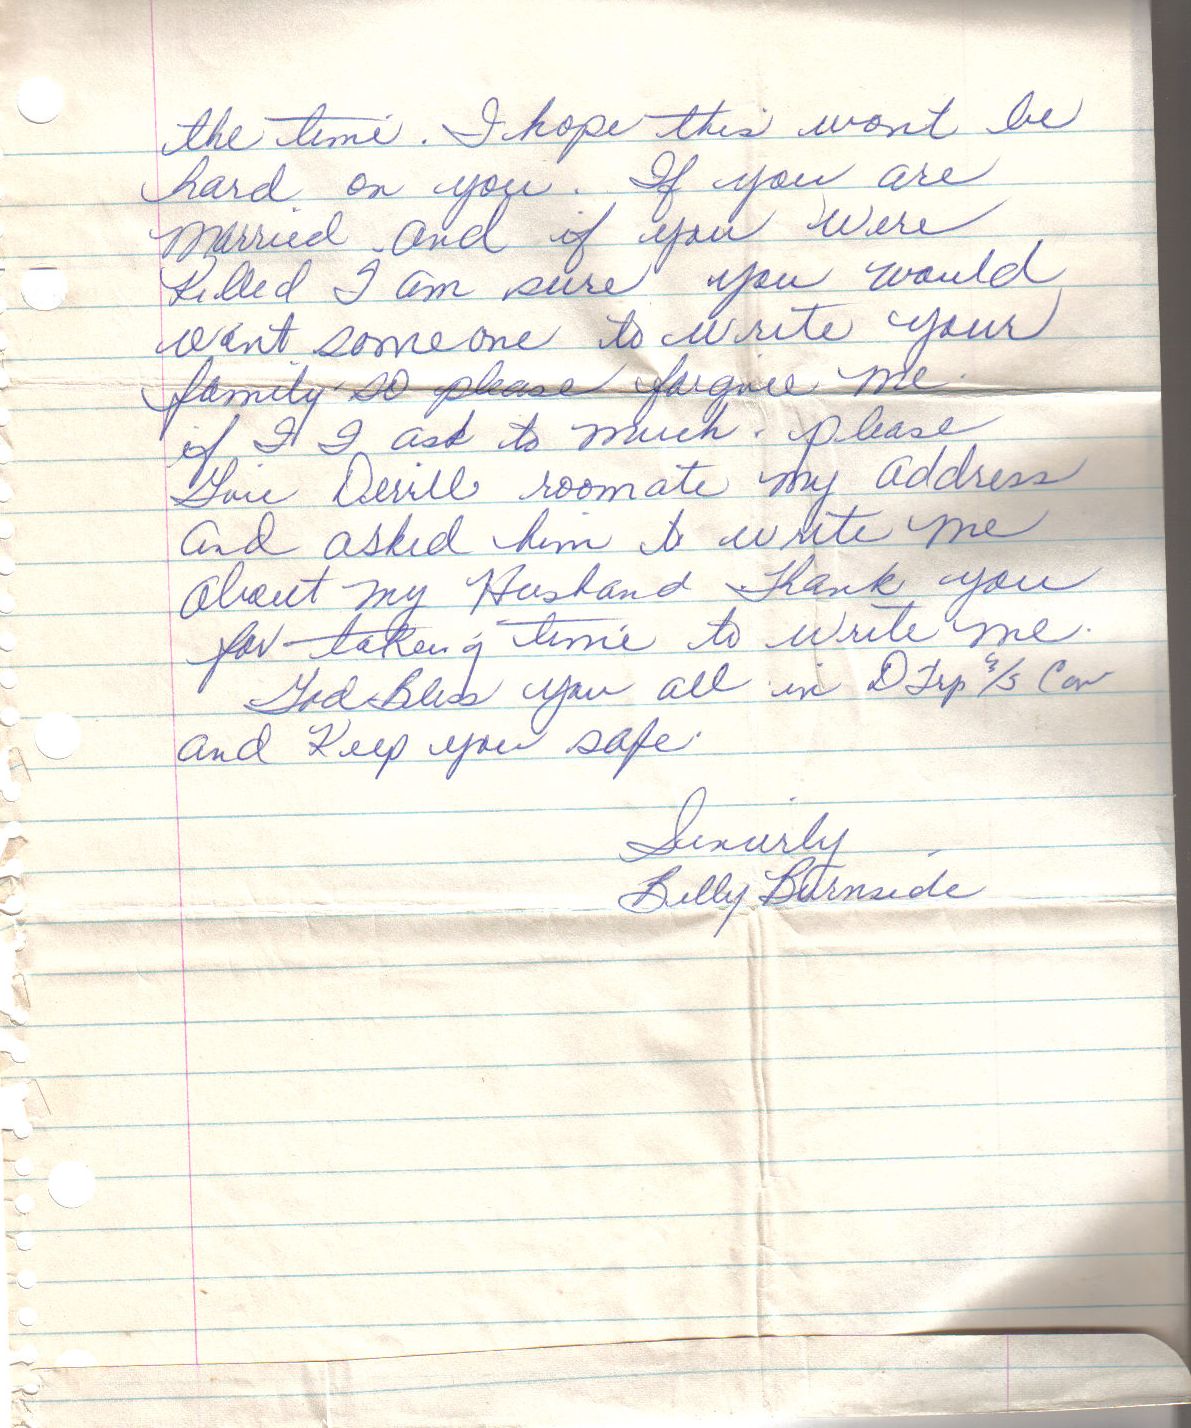 the time. I hope this wont be
hard on you. If you are
married and if you were
killed I am sure you would
want someone to write your
family so please forgive me
if I I ask to much. please
Give Derill roomate my address
and asked him to write me
about my Husband Thank you
for taking time to write me.
God Bless you all in D Trp 3/5 Cav
and Keep you safe.
Sincirly
Billy Burnside